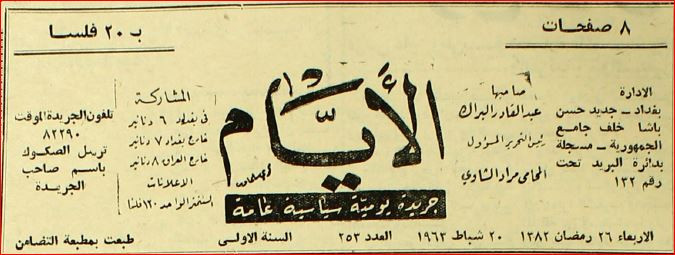 ٨ صفحات
بـ ٢٠ فلسا
الأيام
جريدة يومية سياسية عامة
صاحبها
عبد القادر البراك
رئيس التحرير المسؤول
المحامي مراد الشاوي
الادارة
بغداد - جديد حسن
باشا خلف جامع
الجمهورية - مسجلة
بدائرة البريد تحت
رقم ١٣٢
المشاركة
في بغداد ٦ دنانير
خارج بغداد ٧ دنانير
خارج العراق ٨ دنانير
الاعلانات
السنتمتر الواحد ١٢٠ فلسا
تلفون الجريدة الموقت
٨٢٢٩٠
ترسل الصكوك
باسم صاحب
الجريدة
الاربعاء ٢٦ رمضان ١٣٨٢ ٢٠ شباط ١٩٦٣ العدد ٢٥٣ السنة الاولى طبعت بمطبعة التضامن